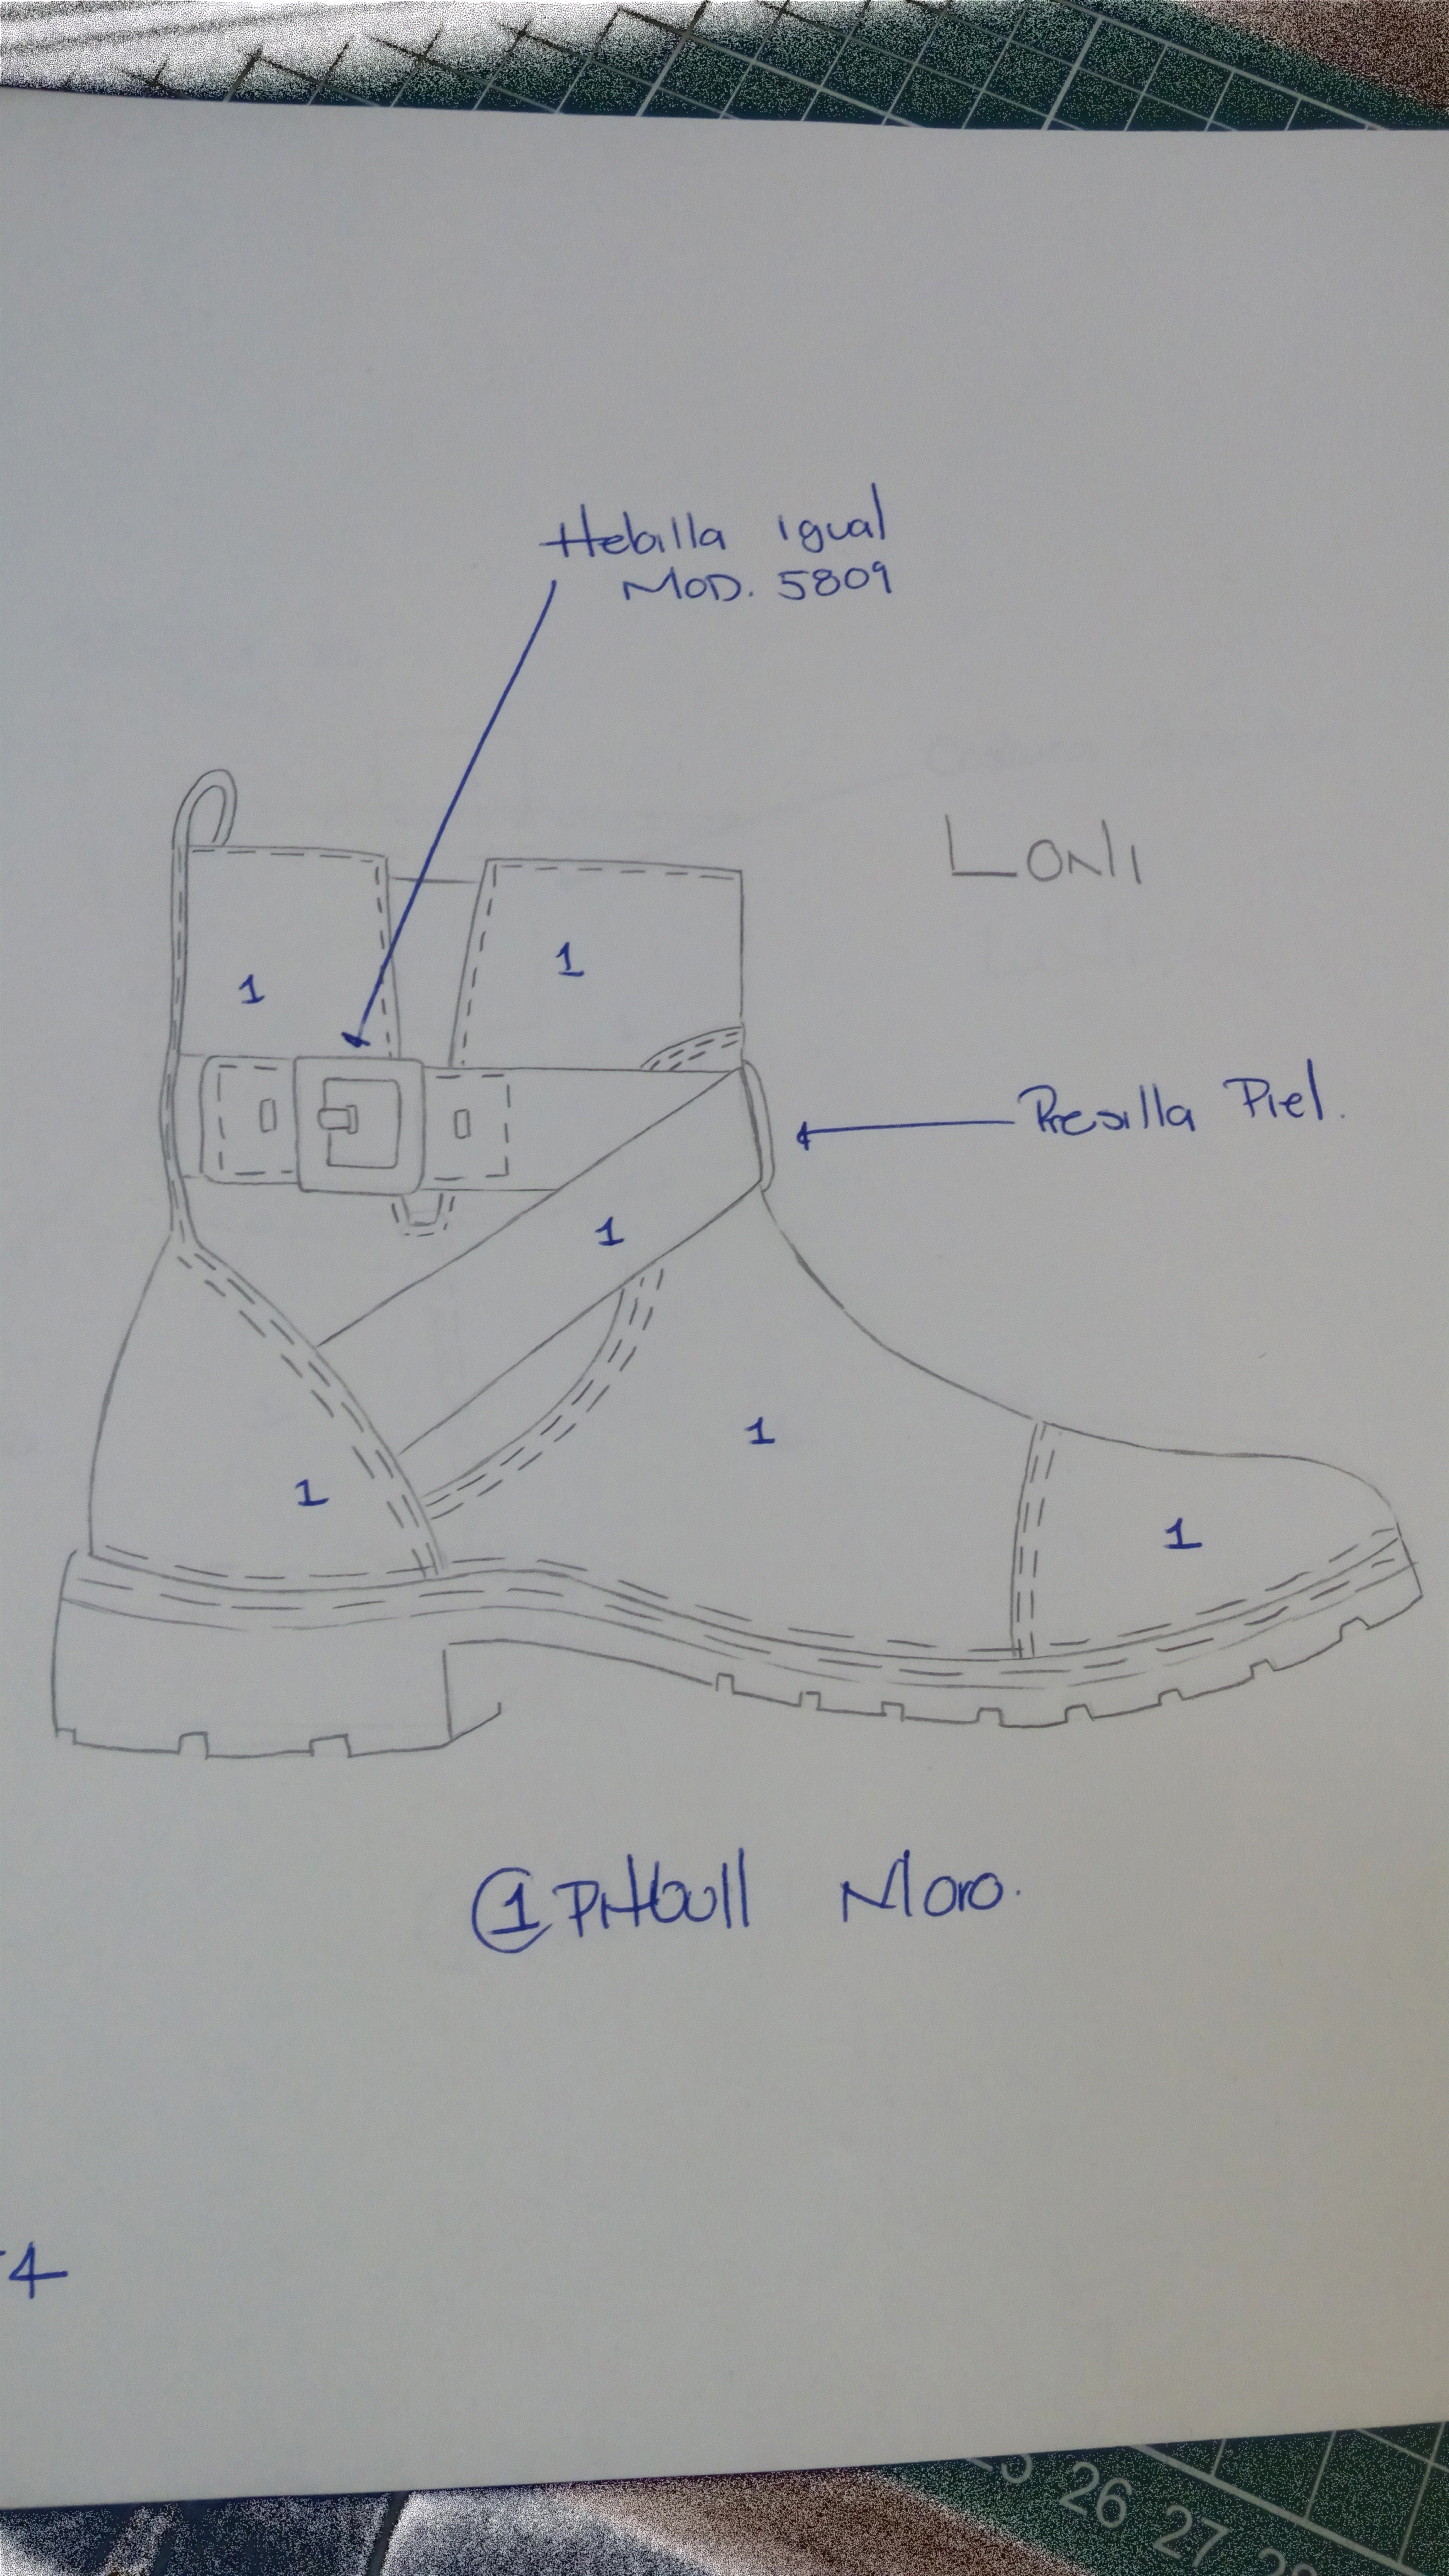 Hebilla igual
MOD. 5809
LONI
1
1
Presilla Piel.
1
1
1
1
① Pitbull Moro.
-4
26
27